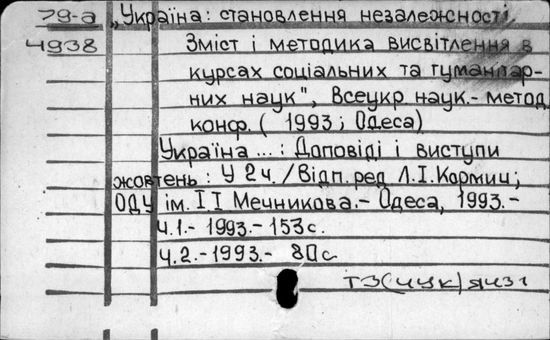 79-а „Україна: становлення незалежності.
4938 Зміст і методика висвітлення в
курсах соціальних та гуманітар-
них наук", Всеукр. наук.- метод.
конф. ( 1993 ; Одеса)
Україна ... : Доповіді і виступи
жовтень : У 2 ч. / Відп. ред Л.І. Кормич ;
ОДУ ім. І І Мечникова.- Одеса, 1993.-
Ч.1.- 1993.- 153 с.
Ч.2.-1993.- 80 с.